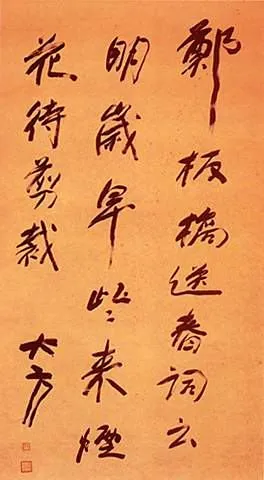 鄭板橋送春詞云
明歲早些來煙
花待剪裁
大方